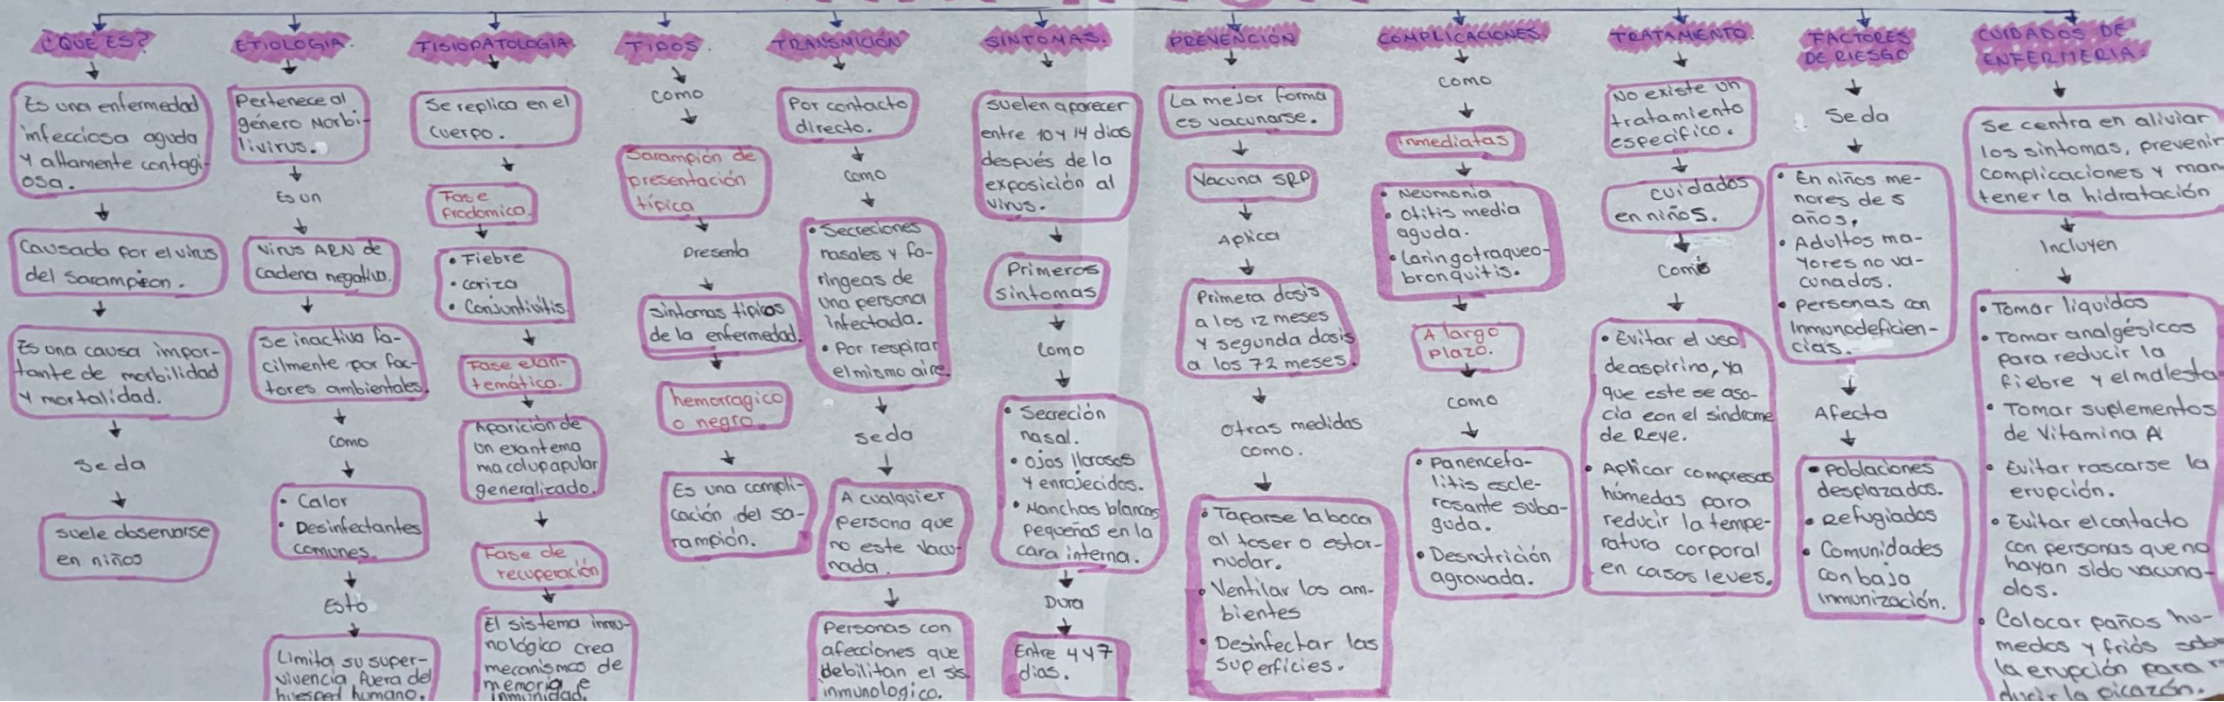 ¿QUE ES?
Es una enfermedad
infecciosa aguda
y altamente contagi-
osa.
Causada por el virus
del Sarampion.
Es una causa impor-
tante de morbilidad
y mortalidad.
Se da
suele observarse
en niños
ETIOLOGIA.
Pertenece al
género Morbi-
livirus.
Es un
Virus ARN de
cadena negativa.
Se inactiva fa-
cilmente por fac-
tores ambientales.
como
• Calor
• Desinfectantes
comunes.
Esto
Limita su super-
vivencia fuera del
huesped humano.
FISIOPATOLOGIA.
Se replica en el
cuerpo.
Fase
Prodomica.
• Fiebre
• coriza
• Conjuntivitis.
Fase exan-
temática.
Aparición de
un exantema
macolupapular
generalizado.
Fase de
recuperación
El sistema inmu-
nológico crea
mecanismos de
memoria e
inmunidad.
TIPOS.
como
Sarampión de
presentación
típica
Presenta
sintomas tipicos
de la enfermedad.
hemorragico
o negro.
Es una compli-
cación del sa-
rampión.
TRANSMICIÓN
Por contacto
directo.
como
• Secreciones
nasales y fa-
ringeas de
una persona
infectada.
• Por respirar
el mismo aire.
se da
A cualquier
persona que
no este vacu-
nada.
Personas con
afecciones que
debilitan el sis.
inmunologico.
SINTOMAS.
suelen aparecer
entre 10 y 14 dias
después de la
exposición al
virus.
Primeros
sintomas
como
• Secreción
nasal.
• Ojos llorosos
y enrojecidos.
• Manchas blancas
pequeñas en la
cara interna.
Dura
Entre 4 y 7
dias.
PREVENCIÓN
La mejor forma
es vacunarse.
Vacuna SRP
Aplica
Primera dosis
a los 12 meses
y segunda dosis
a los 72 meses.
otras medidas
como.
• Taparse la boca
al toser o estor-
nudar.
• Ventilar los am-
bientes
• Desinfectar las
superficies.
COMPLICACIONES.
como
inmediatas
• Neumonia
• otitis media
aguda.
• Laringotraqueo-
bronquitis.
A largo
plazo.
como
• Panencefa-
litis escle-
rosante suba-
guda.
• Desnutrición
agravada.
TRATAMIENTO.
No existe un
tratamiento
especifico.
cuidados
en niños.
Como
• Evitar el uso
de aspirina, ya
que este se aso-
cia con el sindrome
de Reye.
• Aplicar compresas
húmedas para
reducir la tempe-
ratura corporal
en casos leves.
FACTORES
DE RIESGO
Se da
• En niños me-
nores de 5
años.
• Adultos ma-
yores no va-
cunados.
• Personas con
Inmunodeficien-
cias.
Afecta
• Poblaciones
desplazadas.
• Refugiados
• Comunidades
con baja
inmunización.
CUIDADOS DE
ENFERMERIA.
Se centra en aliviar
los sintomas, prevenir
complicaciones y man
tener la hidratación
Incluyen
• Tomar liquidos
• Tomar analgésicos
para reducir la
fiebre y el malesta
• Tomar suplementos
de Vitamina A
• Evitar rascarse la
erupción.
• Evitar el contacto
con personas que no
hayan sido vacuna-
dos.
• Colocar paños hu-
medos y friós sob
la erupción para r
ducir la picazón.